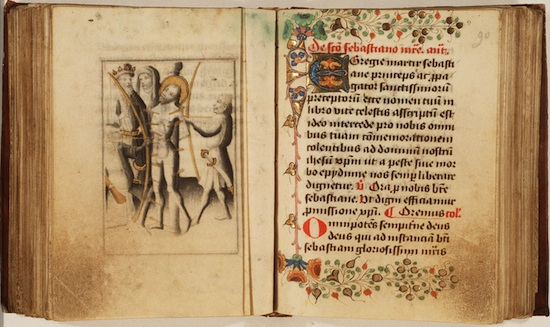 90
De scō sebastiano mr̄e. añt.
Egregie martir sebasti
ane princeps ac ꝓpa
gator sanctissimorū
preceptorū ecce nomen tuū in
libro vite celestis asscriptū est
ideo intercede pro nobis omni
bus tuam cōmemorationem
colentibus ad dominū nostrū
ihesū xp̄m ut a peste siue mor
bo epydimie nos semꝑ liberare
dignetur. V Ora p nobis bt̄e
sebastiane. Vt digni efficiamur
ꝓmissione xp̄i. Oremus col̄.
Omnipotēs sempit̄ne deus
deus qui ad instanciā bt̄i
sebastiani gloriosissimi mr̄is